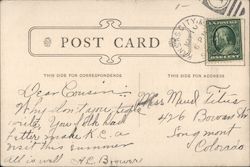 POST CARD
THIS SIDE FOR CORRESPONDENCE
THIS SIDE FOR ADDRESS
Dear Cousin:-
Why don't you
write, You folk had
better make K.C. a
visit this summer
All is well
Miss Maud Titus
426 Bowen St
Longmont
Colorado